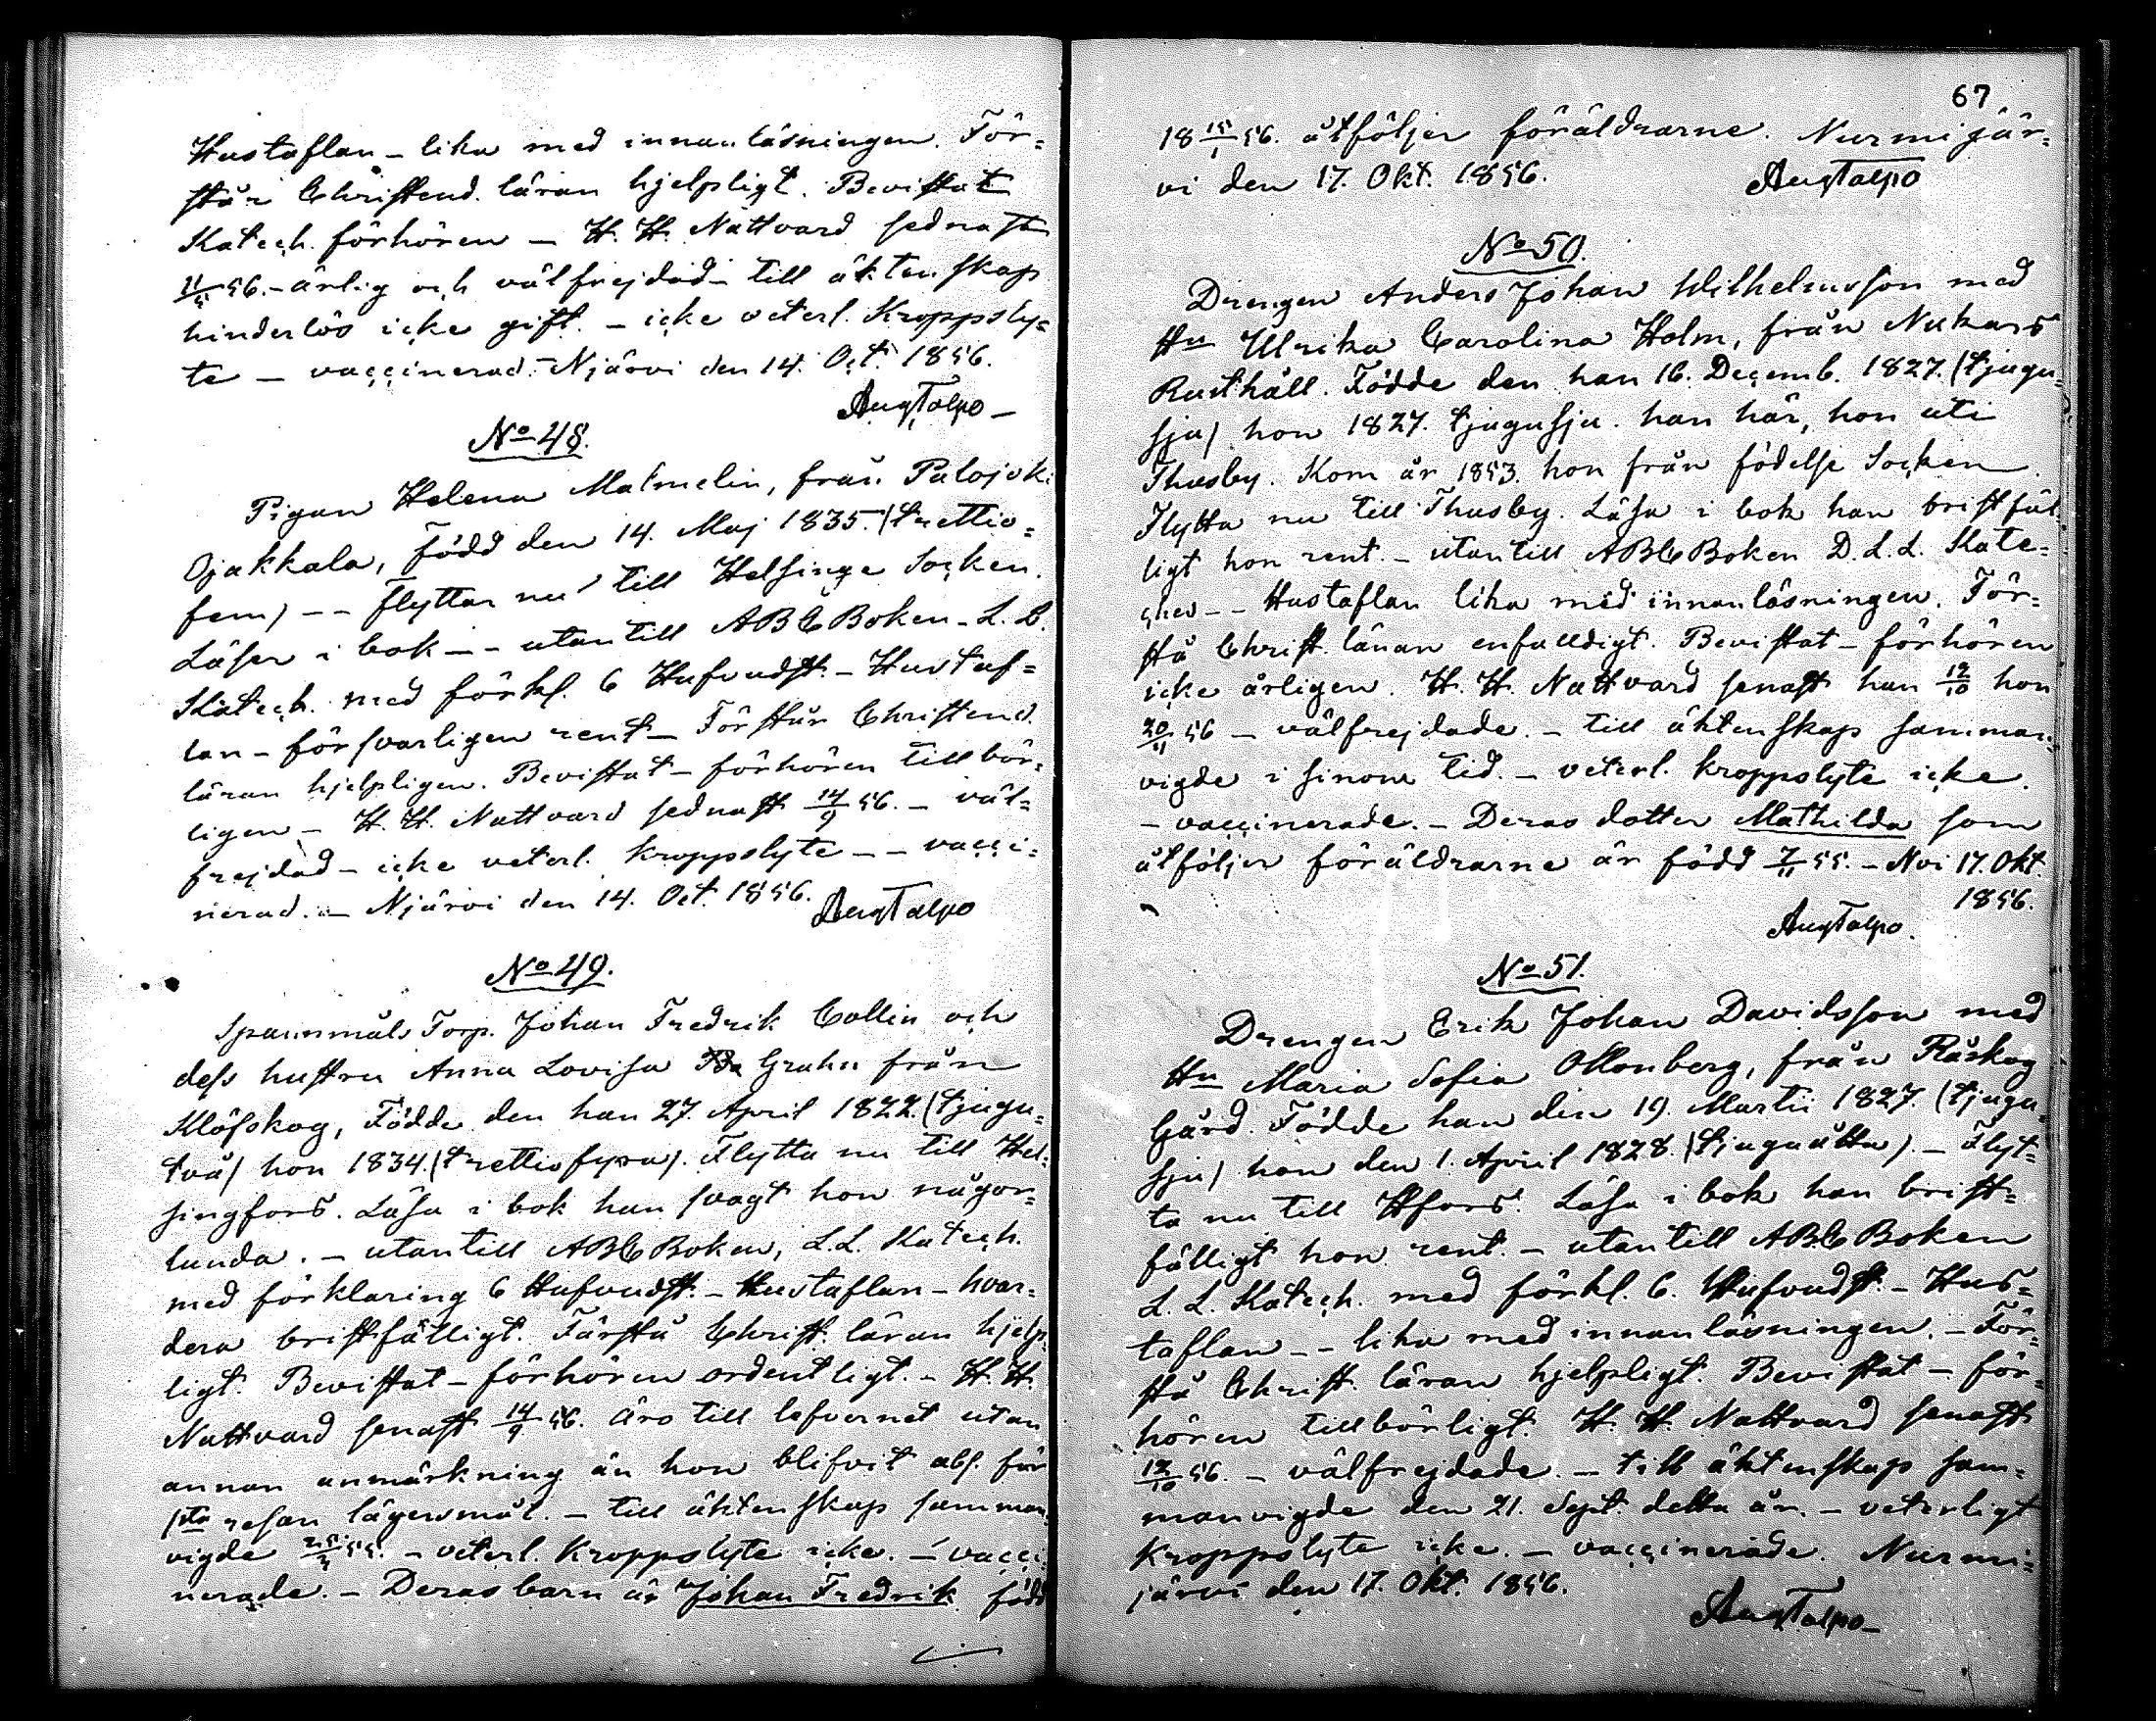 Hustaflan - lika med innanläsningen. För=
står Christend. läran hjelpligt. Bevistat
Katech. förhören - H. H. Nattvard sednast
11/5 56. - ärlig och välfrejdad - till äktenskap
hinderlös icke gift. - icke veterl. Kroppsly=
te - vaccinerad. - Njärvi den 14. Oct. 1856.
AugTalpo -
No 48.
Pigan Helena Malmelin, från Palojoki
Ojakkala, född den 14. Maj 1835. (trettio=
fem) - - Flyttar nu till Helsinge Socken.
Läser i bok - - utantill ABC Boken - L. L.
Katech. med förkl. 6 Hufvudst. - Hustaf=
lan - försvarligen rent - Förstår Christend.
läran hjelpligen. Bevistat - förhören tillbör=
ligen - H. H. Nattvard sednast 14/9 56. - väl=
frejdad - icke veterl. kroppslyte - - vacci=
nerad. - Njärvi den 14. Oct. 1856.
AugTalpo
No 49.
Spannmåls Torp. Johan Fredrik Collin och
dess hustru Anna Lovisa Grahn från
Klöfskog, Födde den han 27. April 1822. (tjugu=
två) hon 1834. (trettiofyra). Flytta nu till Hel=
singfors. Läsa i bok han svagt hon någor=
lunda. - utantill ABC Boken, L. L. Katech.
med förklaring 6 Hufvudst. - Hustaflan - hvar=
dera bristfälligt. Förstå Christ. läran hjelp=
ligt. Bevistat - förhören ordentligt. - H. H.
Nattvard senast 14/9 56. Äro till lefvernet utan
annan anmärkning än hon blifvit abs. för
1sta resan lägersmål. - till äktenskap samman=
vigde 55. - veterl. Kroppslyte icke. - vacci=
nerade. - Deras barn är Johan Fredrik född
67.
18 15/1 56. åtföljer föräldrarne. Nurmijär=
vi den 17. Okt. 1856.
AugTalpo
No 50.
Drengen Anders Johan Wilhelmsson med
Hu Ulrika Carolina Holm, från Nukars
Rusthåll. Födde den han 16. Decemb. 1827. (tjugu=
sju) hon 1827. tjugusju. han här, hon uti
Thusby. Kom år 1853. hon från födelse Socken.
Flytta nu till Thusby. Läsa i bok han bristfäl=
ligt hon rent. - utantill ABC Boken D. L. L. Kate=
ches - - Hustaflan lika med innanläsningen. För=
stå Christ. läran enfalldigt. Bevistat - förhören
icke årligen. H. H. Nattvard senast han 12/10 hon
20/11 56 - välfrejdade. - till äktenskap samman=
vigde i sinom tid. - veterl. kroppslyte icke.
- vaccinerade. - Deras dotter Mathilda som
åtföljer föräldrarne är född 7/11 55. - Nvi 17. Okt.
1856.
AugTalpo.
No 51.
Drengen Erik Johan Davidsson med
Hu Maria Sofia Ollonberg, från Råskog
Gård. Födde han den 19. Martii 1827. (tjugu=
sju) hon den 1. April 1828. (tjuguåtta). - Flyt=
ta nu till Hfors. Läsa i bok han brist=
fälligt hon rent. - utantill ABC Boken
L. L. Katech. med förkl. 6. Hufvudst. - Hus=
taflan - - lika med innanläsningen. - För=
stå Christ. läran hjelpligt. Bevistat - för=
hören tillbörligt. H. H. Nattvard senast
12/10 56. - välfrejdade. - till äktenskap sam=
manvigde den 21. Sept. detta år. - veterligt
Kroppslyte icke. - vaccinerade. Nurmi=
järvi den 17. Okt. 1856.
AugTalpo -